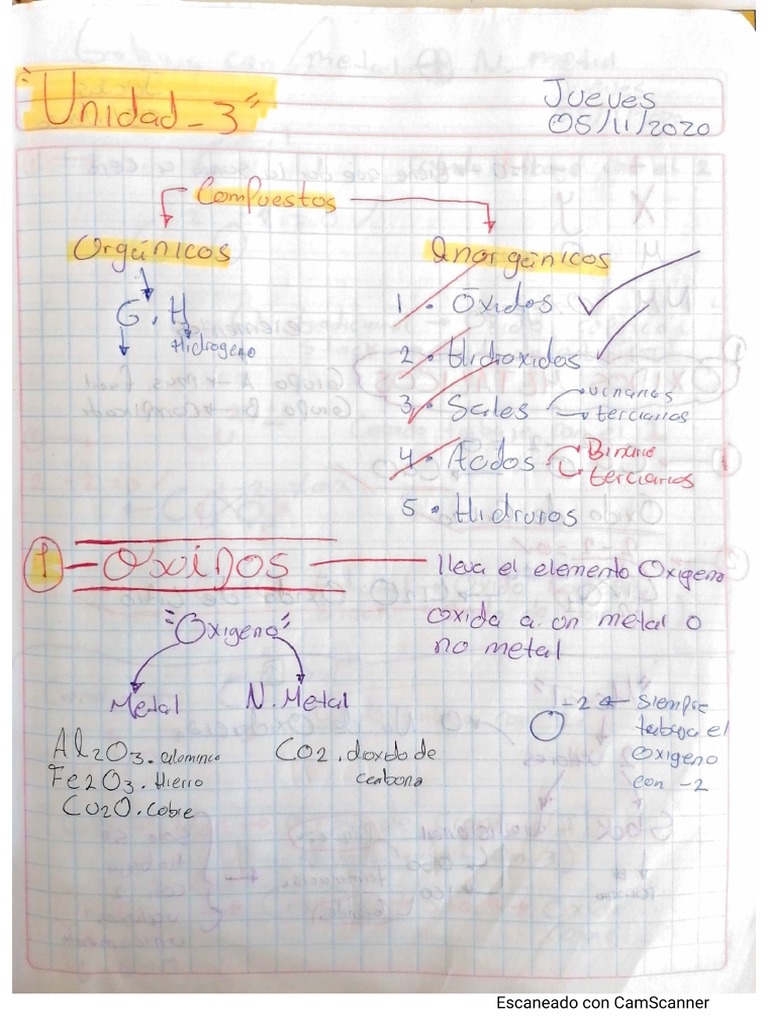 "Unidad-3"
Jueves
05/11/2020
Compuestos
Orgánicos
Inorgánicos
C, H
Hidrogeno
1. Óxidos
2. Hidroxidos
3. Sales
terciarios
4. Acidos
Binario
terciarios
5. Hidruros
1 - OxiDOS
lleva el elemento Oxigeno
oxida a un metal o
no metal
"Oxigeno"
Metal
N. Metal
O -2 ← Siempre
trabaja el
oxigeno
con -2
Al2O3. aluminio
Fe2O3. Hierro
Cu2O. cobre
CO2. dioxido de
carbono
Escaneado con CamScanner